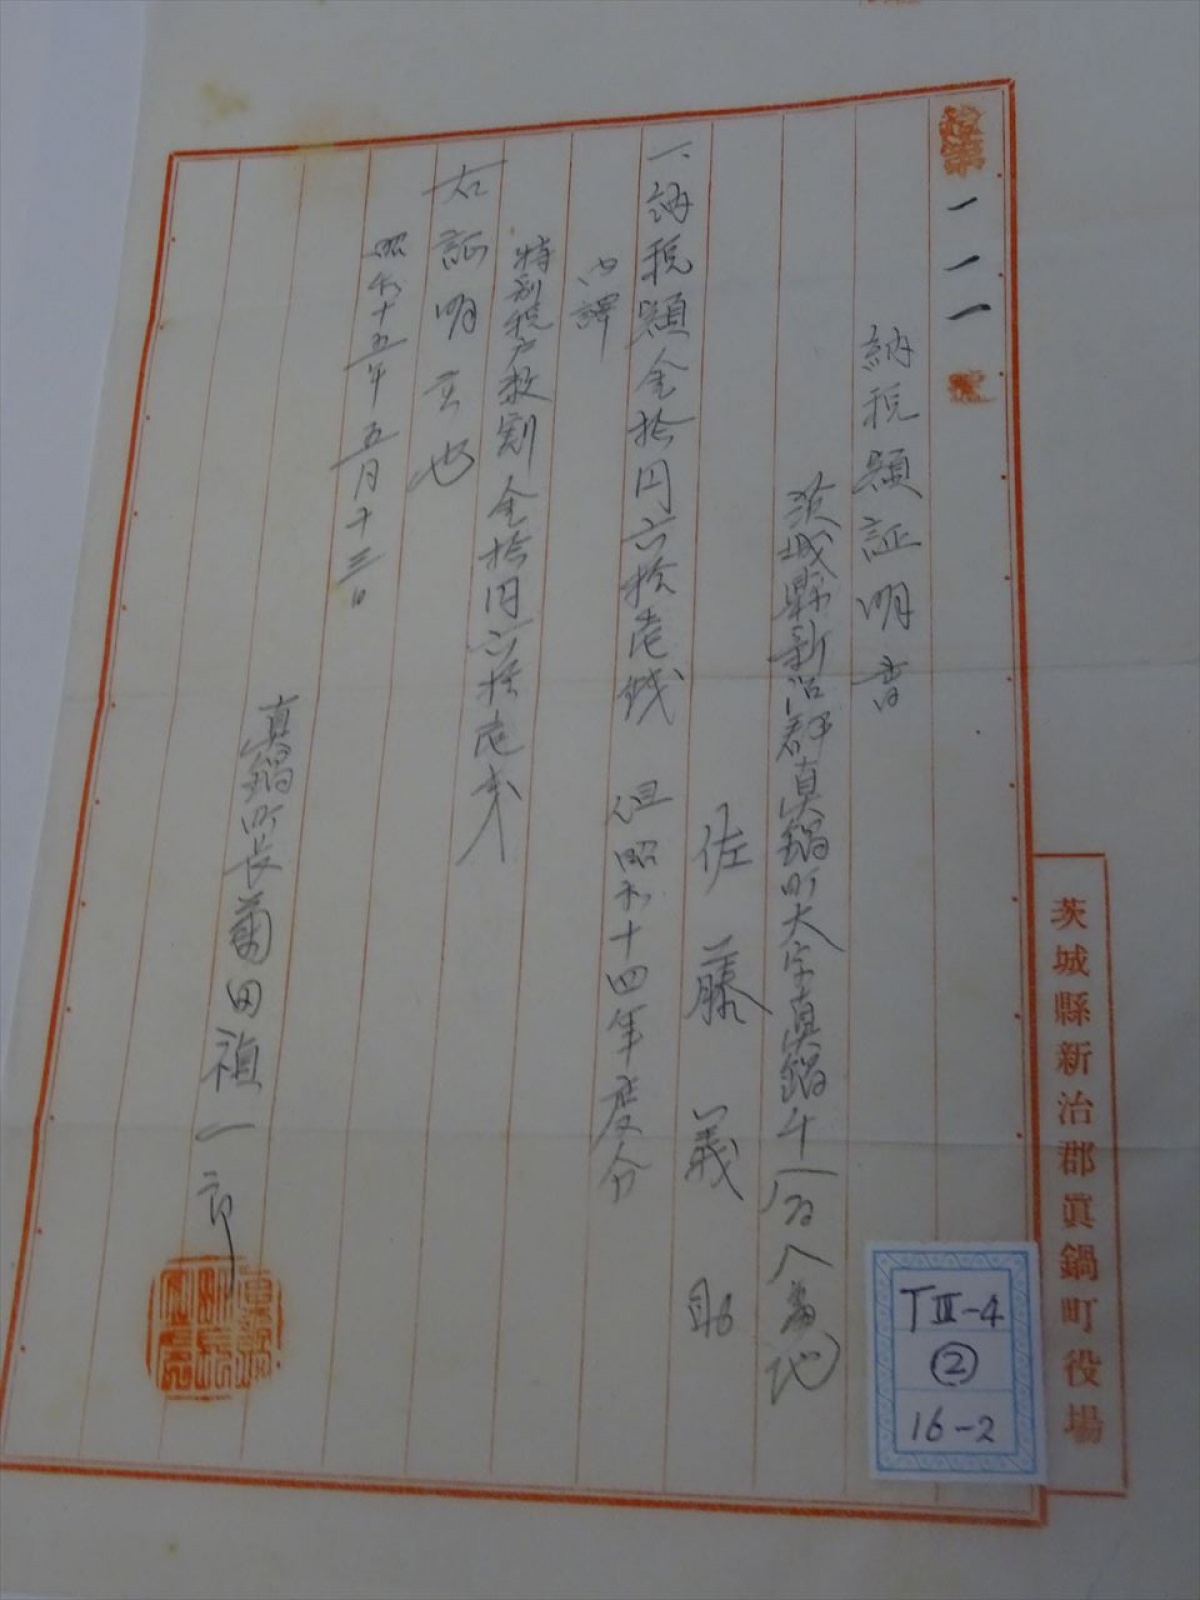 第一一一號
納税額証明書
茨城縣新治郡真鍋町大字真鍋千百八番地
佐藤義助
一、納税額金拾円六拾壱銭 但昭和十四年度分
内譯
特別税戸数割金拾円六拾壱銭
右証明ス也
昭和十五年五月十三日
真鍋町長 田禎一郎
茨城縣新治郡眞鍋町役場
TⅢ-4
②
16-2